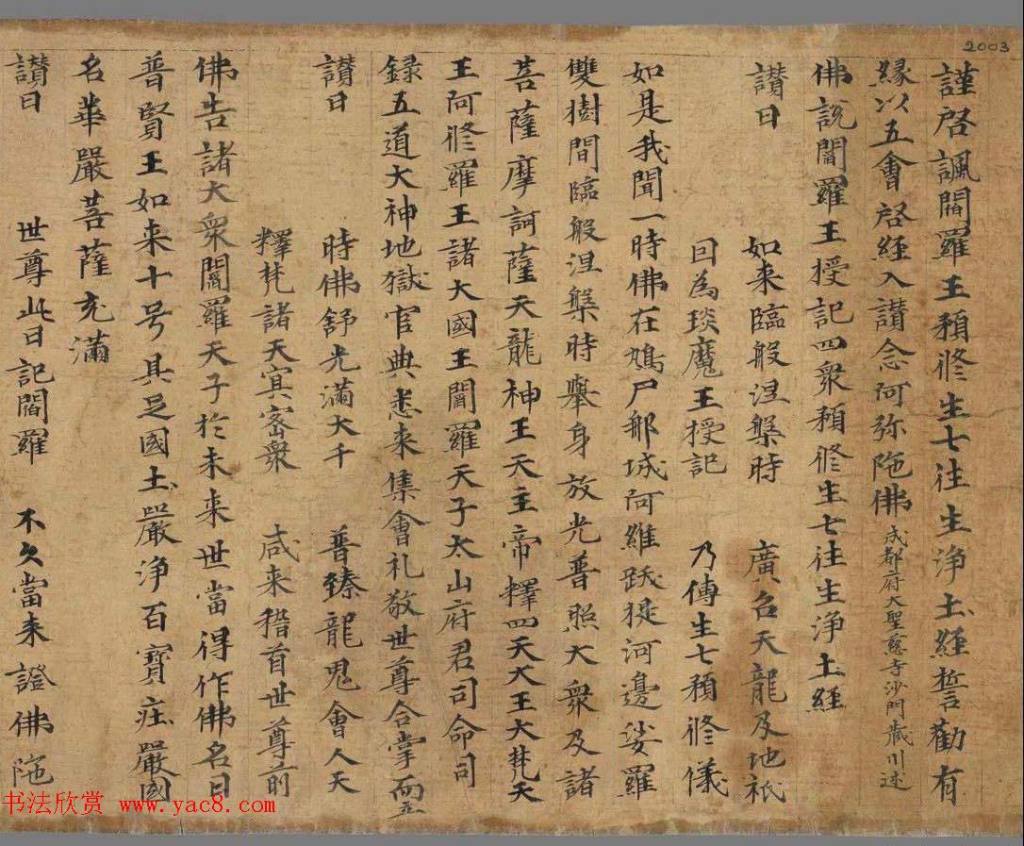 2003
謹啓諷閻羅王預修生七往生淨土經誓勸有
緣以五會啓經入讃念阿弥陁佛 成都府大聖慈寺沙門藏川述
佛說閻羅王授記四衆預修生七往生淨土經
讃曰 如来臨般涅槃時 廣召天龍及地祇
囙為琰魔王授記 乃傳生七預修儀
如是我聞一時佛在鳩尸那城阿維跋提河邊娑羅
雙樹間臨般涅槃時舉身放光普照大衆及諸
菩薩摩訶薩天龍神王天主帝釋四天大王大梵天
王阿修羅王諸大國王閻羅天子太山府君司命司
録五道大神地獄官典悉来集會礼敬世尊合掌而立
讃曰 時佛舒光滿大千 普臻龍鬼會人天
釋梵諸天冥密衆 咸来稽首世尊前
佛告諸大衆閻羅天子於未来世當得作佛名曰
普賢王如来十号具足國土嚴淨百寶莊嚴國
名華嚴菩薩充滿
讃曰 世尊此日記閻羅 不久當来證佛陁
书法欣赏 www.yac8.com